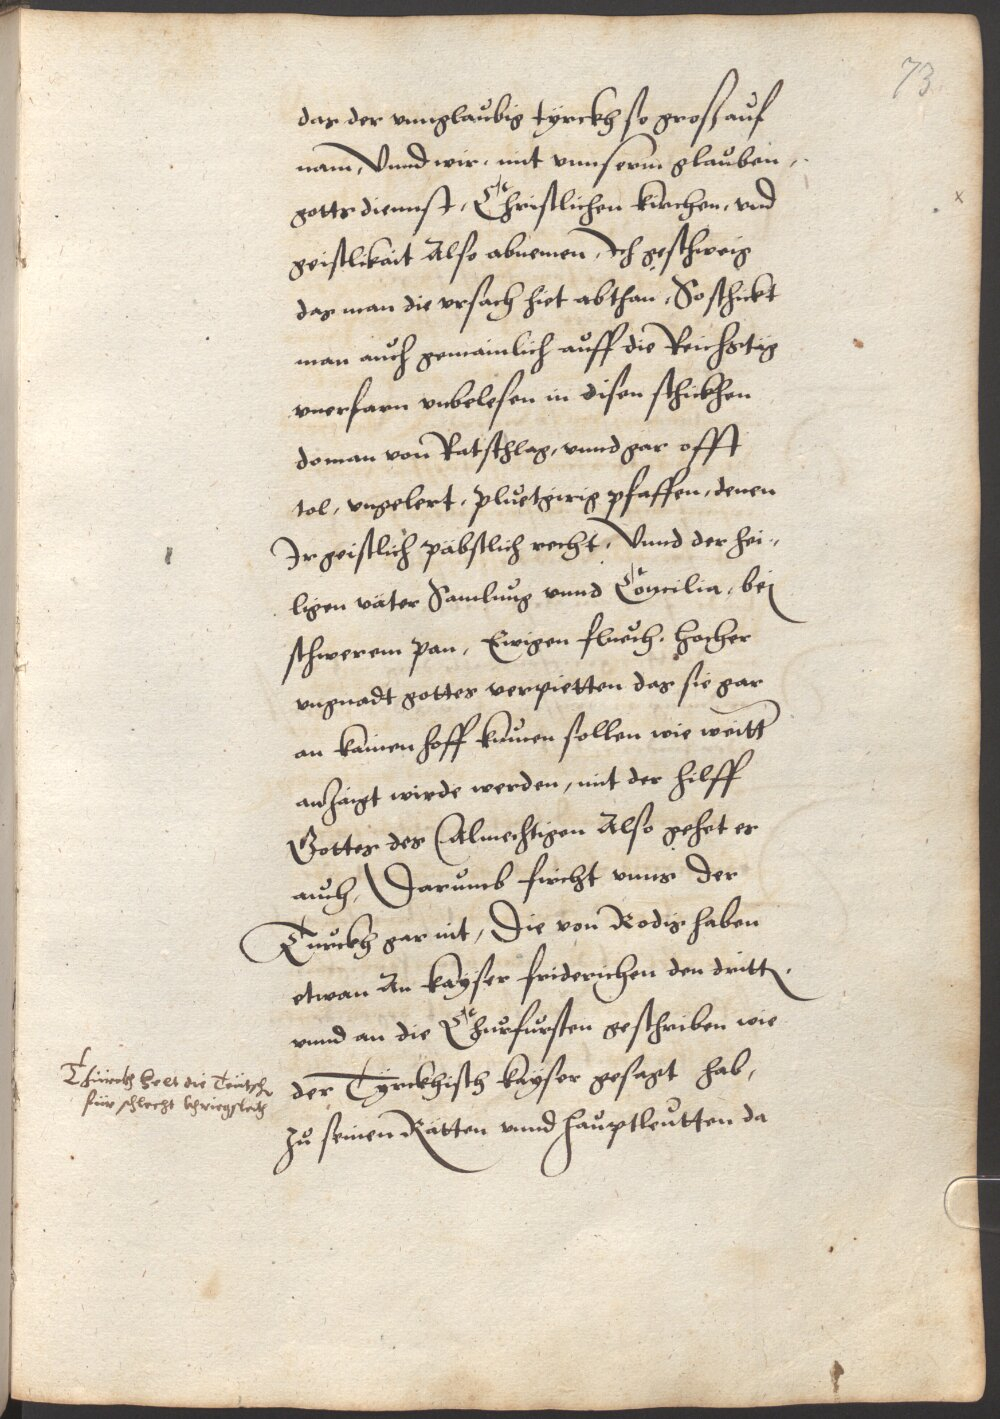 73.
das der vnnglaubig tyrckh so gross auf
nam, Vnnd wir, mit vnnserm glauben,
gotts diennst, Christlichen kirchen, vnd
geistlikait Also abnemen, Ich geschweig
das man die vrsach hiet abthan, So schickt
man auch gemainlich auff die Reichstäg
vnerfarn vnbelesen in disen schickhen
do man von Ratschlag, vnnd gar offt
tol, vngelert, pluetgirig pfaffen, denen
Ir geistlich päbstlich recht, Vnnd der hei-
ligen väter Samlung vnnd Concilia, bei
schwerem pan, Ewigen fluech, hocher
vngnadt gottes verpietten das sie gar
an kainen hoff kumen sollen wie weitt
anzaigt wirde werden, mit der hilff
Gottes des Almechtigen Also gehet es
auch, Darumb fircht vnns der
Turckh gar nit, Die von Rodis haben
etwan An kayser friderichen den dritt,
vnnd an die Churfursten geschriben wie
der Tyrckhisch kayser gesagt hab,
zu seinen Rätten vnnd hauptleutten da
Thürckh helt die Teütsche
für schlecht khriegsleüt